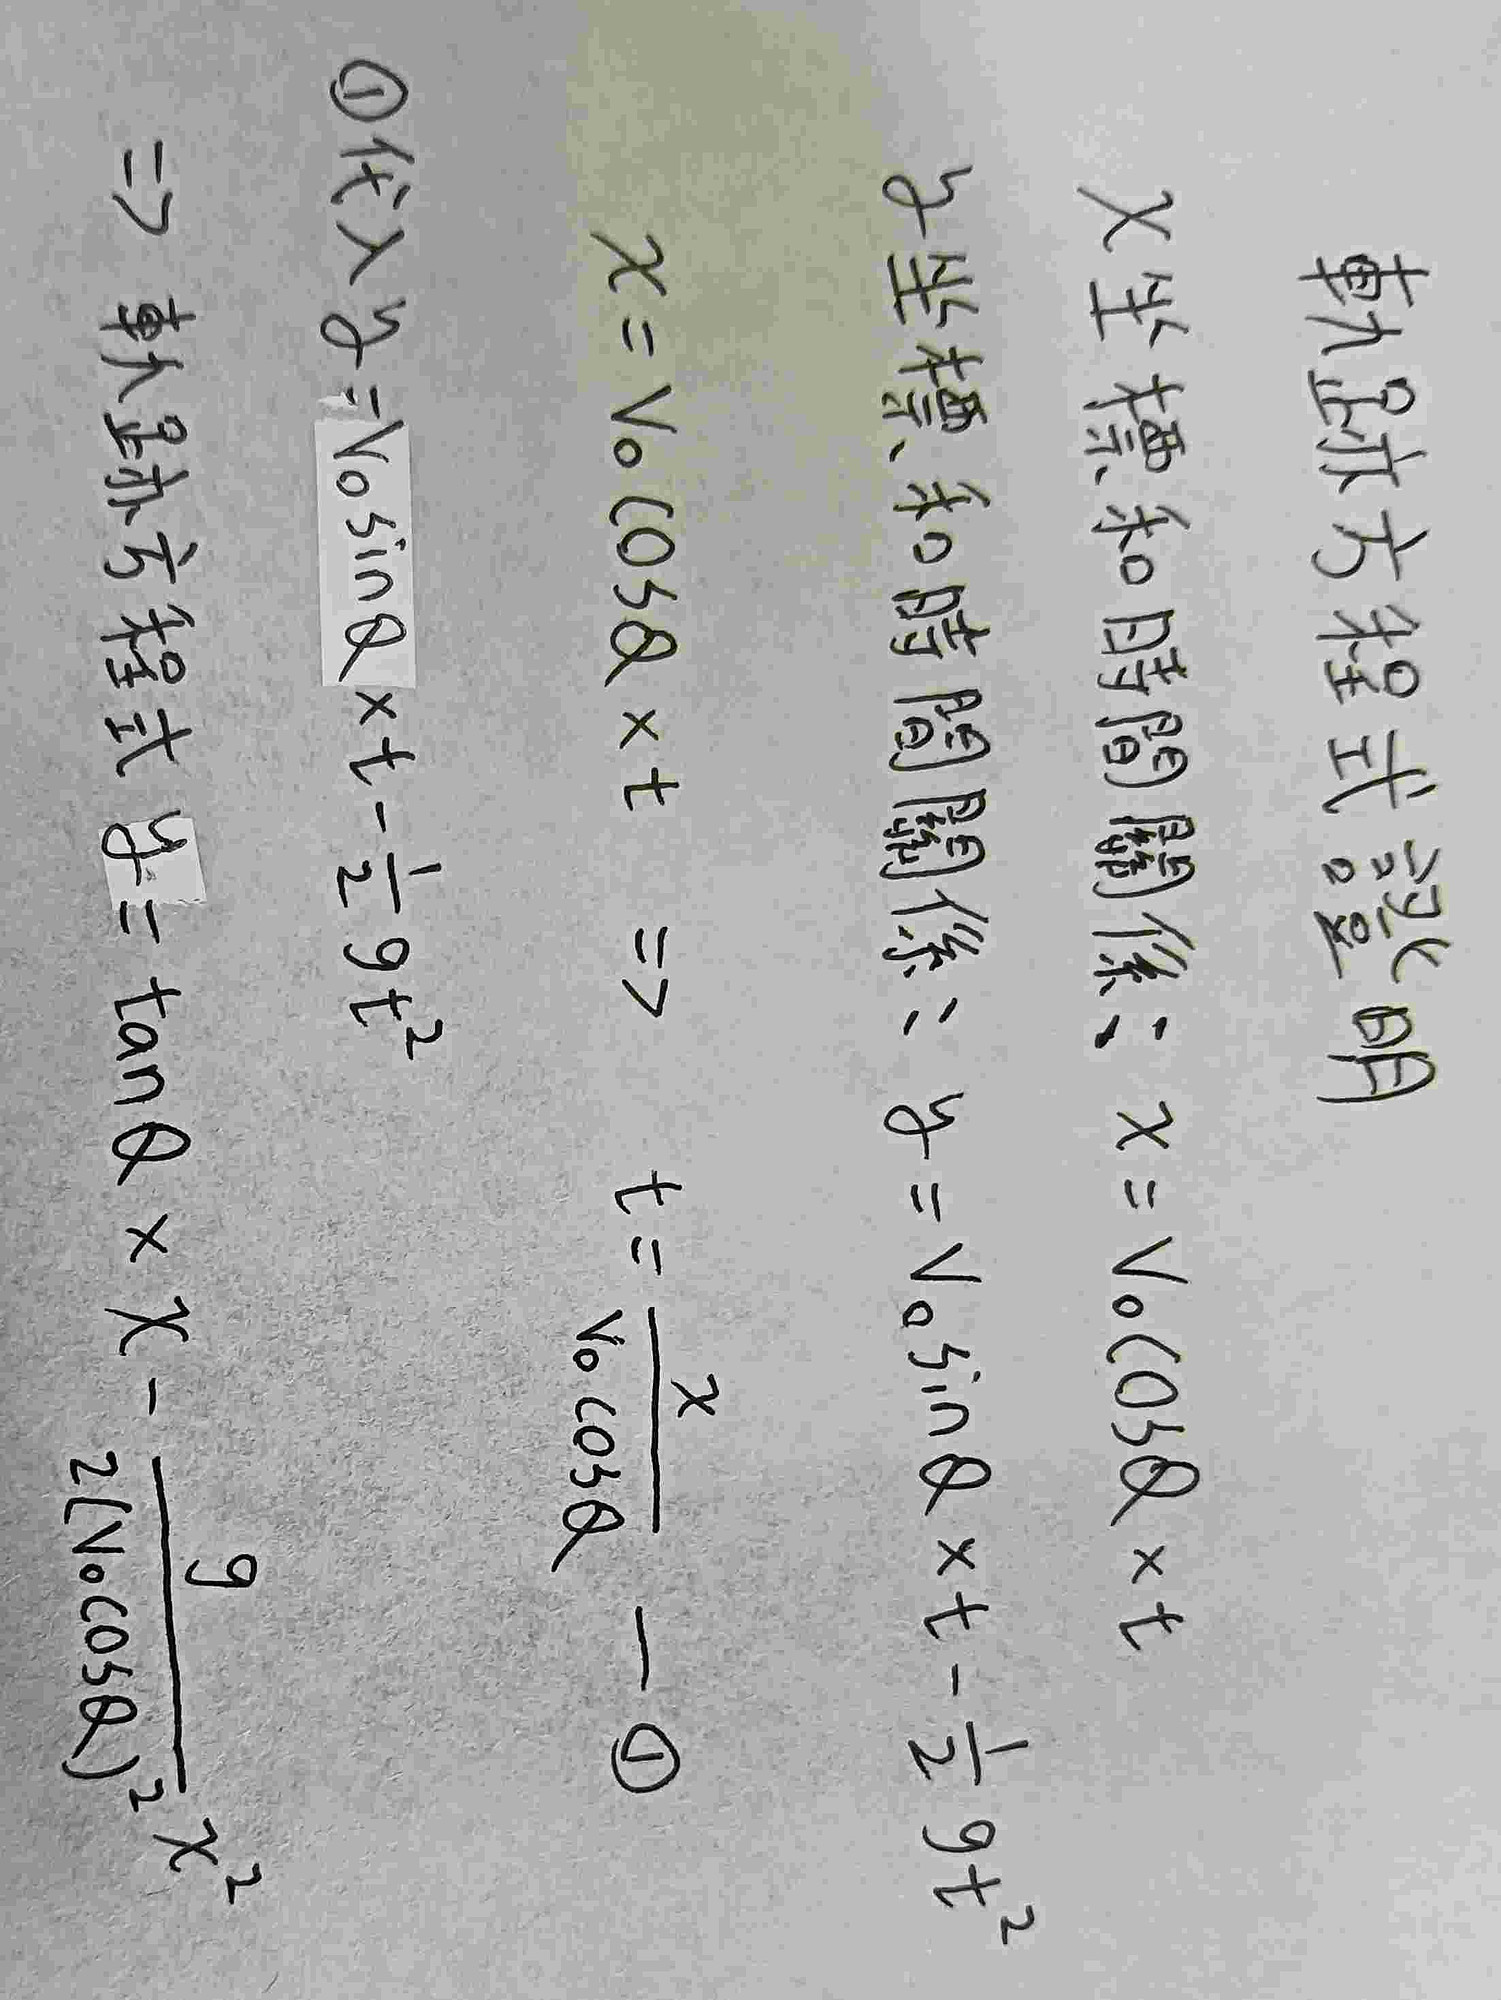 軌跡方程式證明
x坐標和時間關係：x = V₀cosθ × t
y坐標和時間關係：y = V₀sinθ × t - 1/2 gt²
x = V₀cosθ × t ⇒ t = x/(V₀cosθ) — ①
①代入y = V₀sinθ × t - 1/2 gt²
⇒ 軌跡方程式 y = tanθ × x - g/(2(V₀cosθ)²) x²